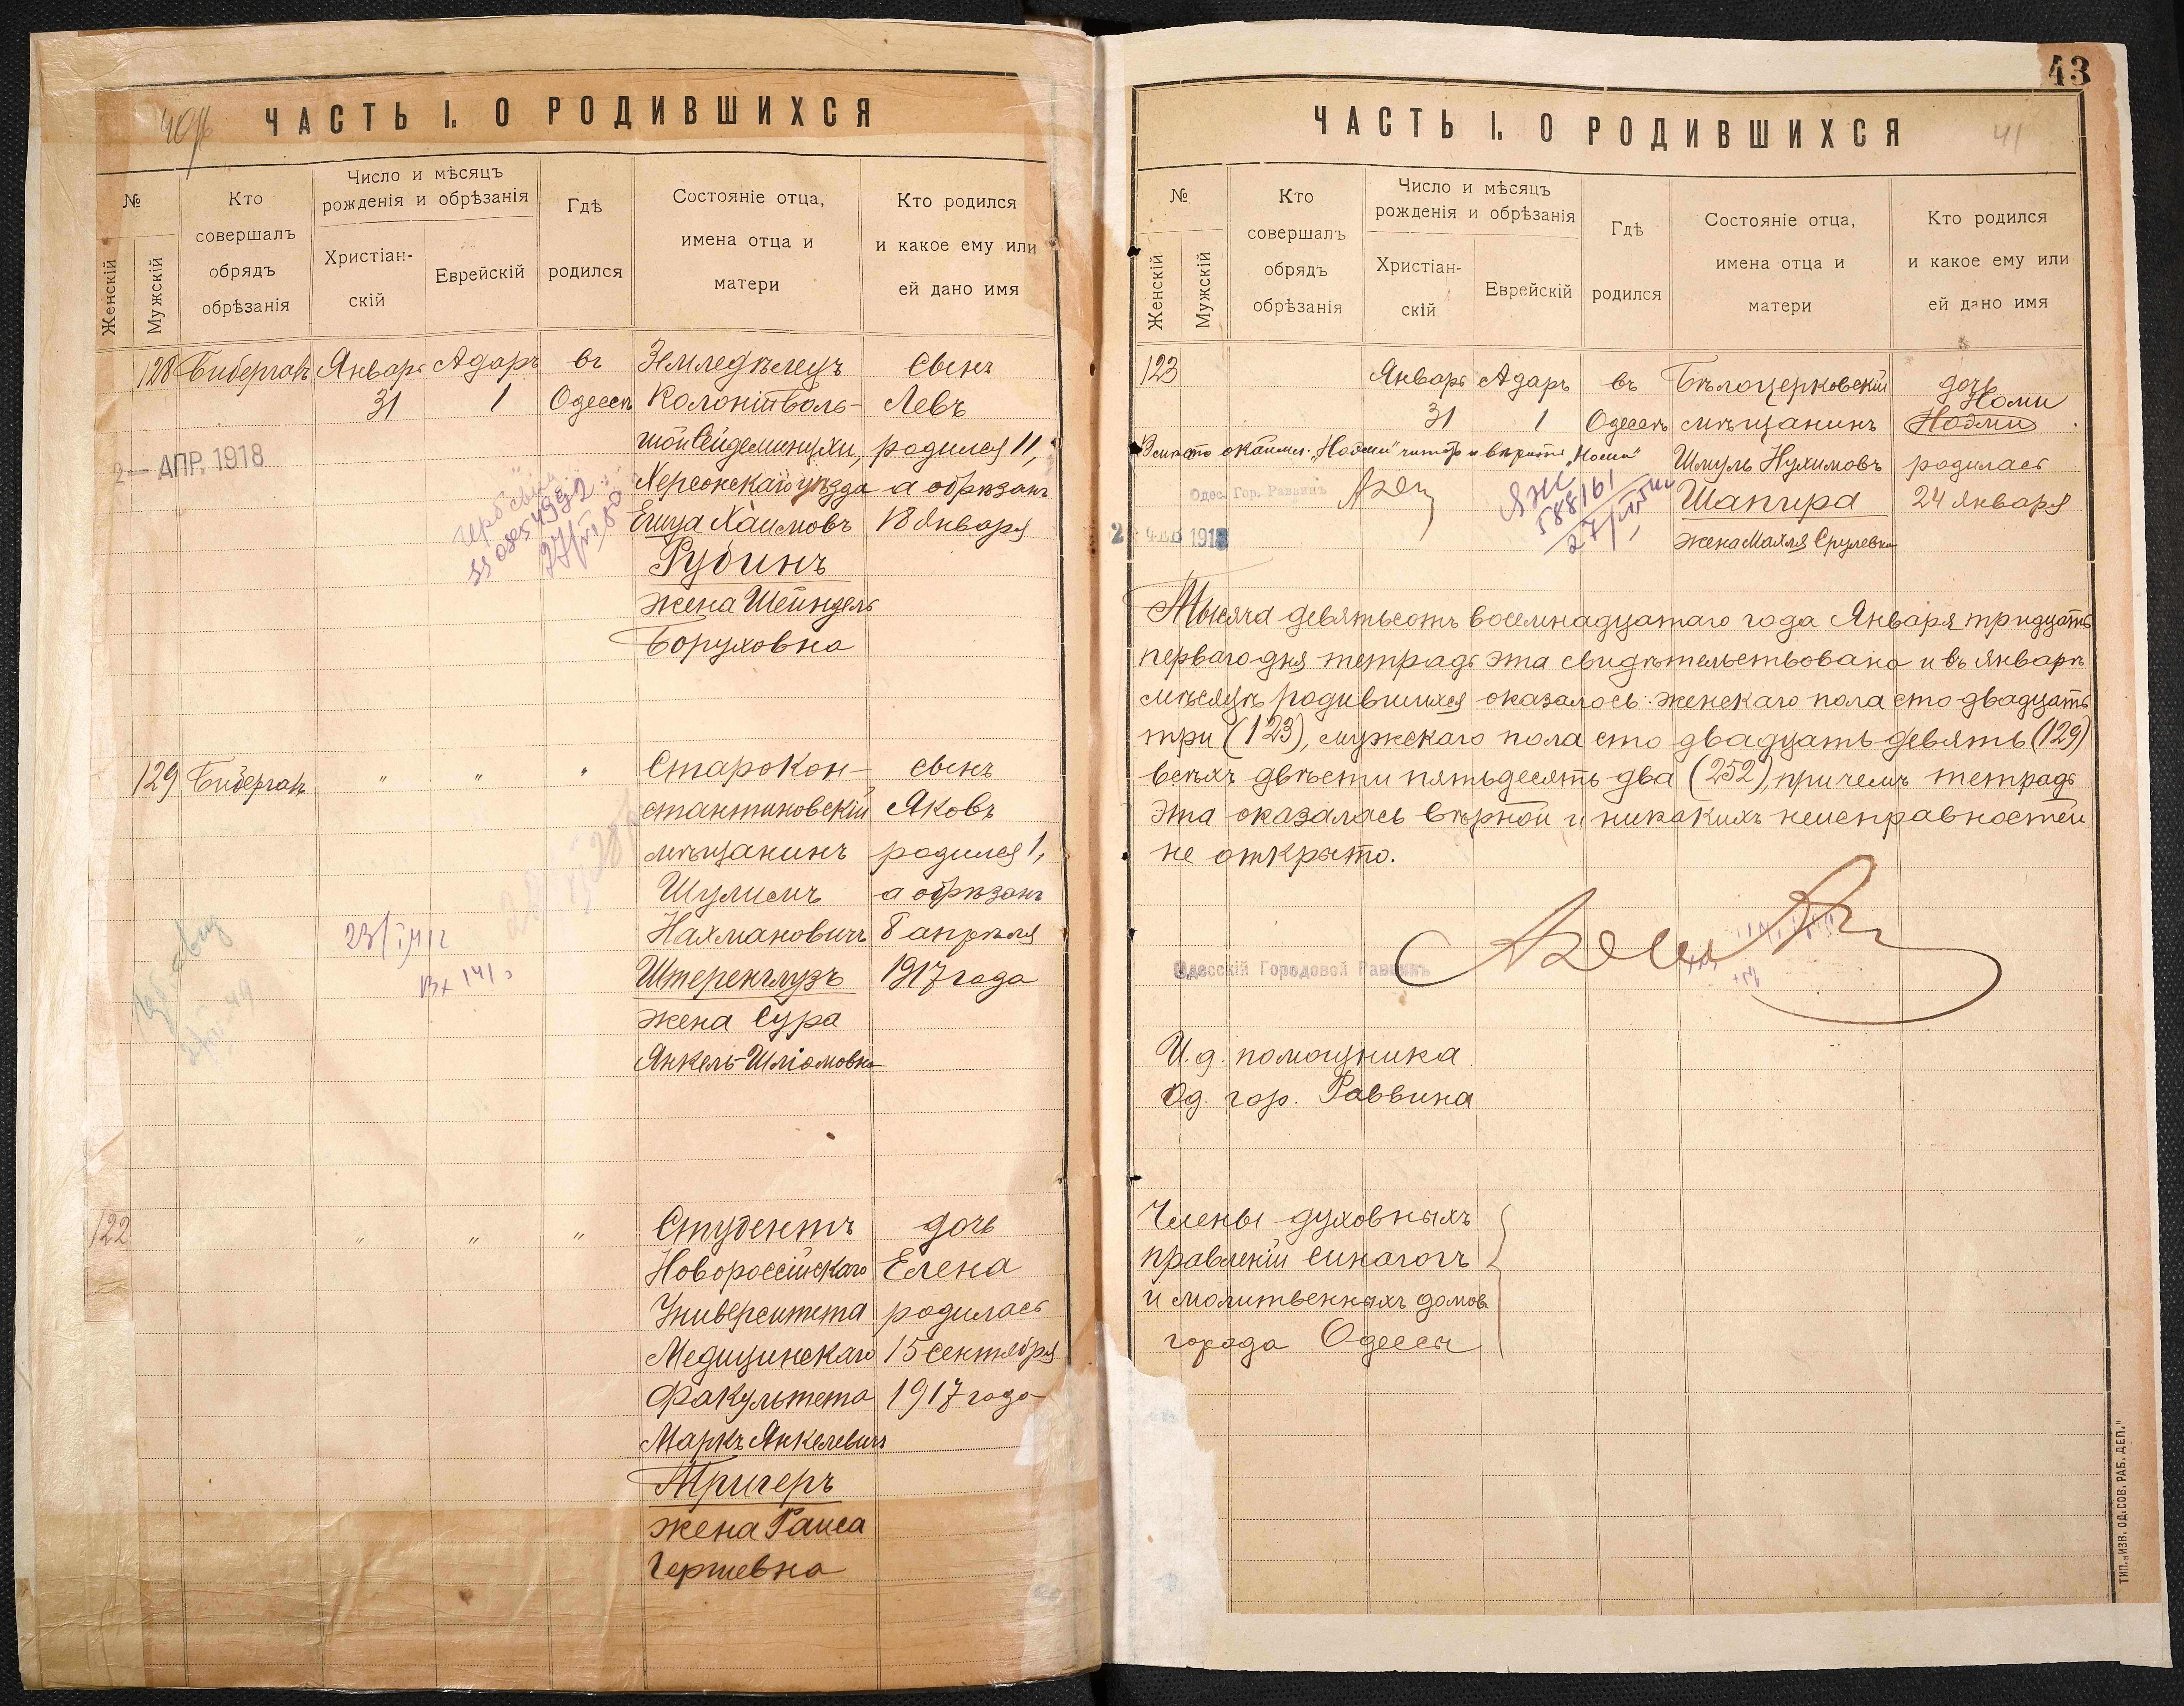 ЧАСТЬ I. О РОДИВШИХСЯ
№
Женскій
Мужскій
Кто
совершалъ
обрядъ
обрѣзанія
Число и мѣсяцъ
рожденія и обрѣзанія
Христіан-
скій
Еврейскій
Гдѣ
родился
Состояніе отца,
имена отца и
матери
Кто родился
и какое ему или
ей дано имя
128 Биберганъ Январь Адаръ въ Земледѣлецъ сынъ
31 1 Одессѣ Колоніи Боль- Левъ
шой Сейдеминухи, родился 11,
2 - АПР. 1918
Херсонскаго уѣзда а обрѣзанъ
Ешуа Хаимовъ 18 Января
Рубинъ
жена Шейндель
Боруховна
129 Биберганъ " " " Старокон- сынъ
стантиновскій Яковъ
мѣщанинъ родился 1,
Шулимъ а обрѣзанъ
Нахмановичъ 8 апрѣля
Штеренглузъ 1917 года
жена Сура
Янкель-Шліомовна
122 " " " Студентъ дочь
Новороссійскаго Елена
Университета родилась
Медицинскаго 15 Сентября
Факультета 1917 года
Маркъ Янкелевичъ
Тригеръ
жена Раиса
Гершевна
43
ЧАСТЬ I. О РОДИВШИХСЯ
41
№
Женскій
Мужскій
Кто
совершалъ
обрядъ
обрѣзанія
Число и мѣсяцъ
рожденія и обрѣзанія
Христіан-
скій
Еврейскій
Гдѣ
родился
Состояніе отца,
имена отца и
матери
Кто родился
и какое ему или
ей дано имя
123 Январь Адаръ въ Бѣлоцерковскій дочь
Номи
31 1 Одессѣ мѣщанинъ Ноэми
Шмуль Нухимовъ родилась
Одес. Гор. Раввинъ
Шапира 24 Января
жена Махля Срулевна
Тысяча девятьсотъ восемнадцатаго года Января тридцать
перваго дня тетрадь эта свидѣтельствована и въ Январѣ
мѣсяцѣ родившихся оказалось: женскаго пола сто двадцать
три (123), мужскаго пола сто двадцать девять (129)
всѣхъ двѣсти пятьдесятъ два (252), причемъ тетрадь
эта оказалась вѣрной и никакихъ неисправностей
не открыто.
Одесскій Городовой Раввинъ
И. д. помощника
Од. гор. Раввина
Члены духовныхъ
правленій синагогъ
и молитвенныхъ домовъ
города Одессы
ТИП. „ИЗВ. ОД. СОВ. РАБ. ДЕП."